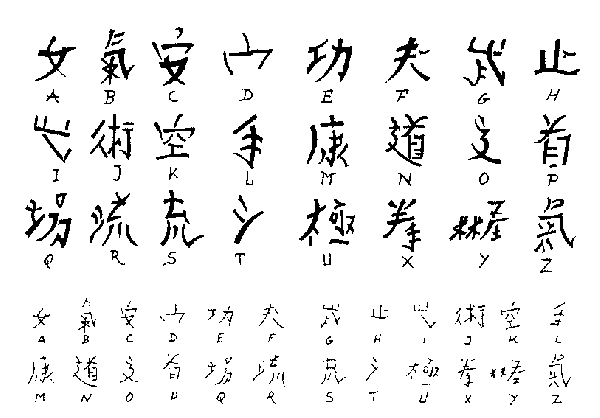 女 氣 安 宀 功 夫 武 止
A B C D E F G H
術 空 手 康 道 首
I J K L M N O P
場 流 㐬 氵 極 拳 氣
Q R S T U X Y Z
女 氣 安 宀 功 夫 武 止 術 空 手
A B C D E F G H I J K L
康 道 首 場 流 㐬 氵 極 拳 氣
M N O P Q R S T U X Y Z